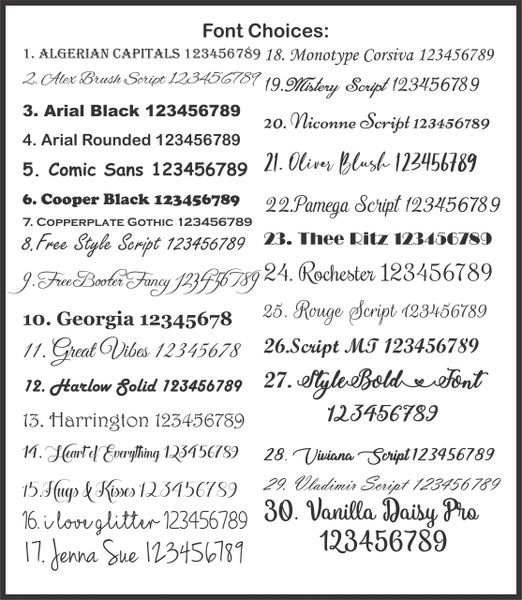 Font Choices:
1. ALGERIAN CAPITALS 123456789
2. Alex Brush Script 123456789
3. Arial Black 123456789
4. Arial Rounded 123456789
5. Comic Sans 123456789
6. Cooper Black 123456789
7. Copperplate Gothic 123456789
8. Free Style Script 123456789
9. FreeBooter Fancy 123456789
10. Georgia 12345678
11. Great Vibes 12345678
12. Harlow Solid 123456789
13. Harrington 123456789
14. Heart of Everything 123456789
15. Hugs & Kisses 123456789
16. i love glitter 123456789
17. Jenna Sue 123456789
18. Monotype Corsiva 123456789
19. Mistery Script 123456789
20. Niconne Script 123456789
21. Oliver Blush 123456789
22. Pamega Script 123456789
23. Thee Ritz 123456789
24. Rochester 123456789
25. Rouge Script 123456789
26. Script MT 123456789
27. StyleBold Font
123456789
28. Viviana Script 123456789
29. Vladimir Script 123456789
30. Vanilla Daisy Pro
123456789